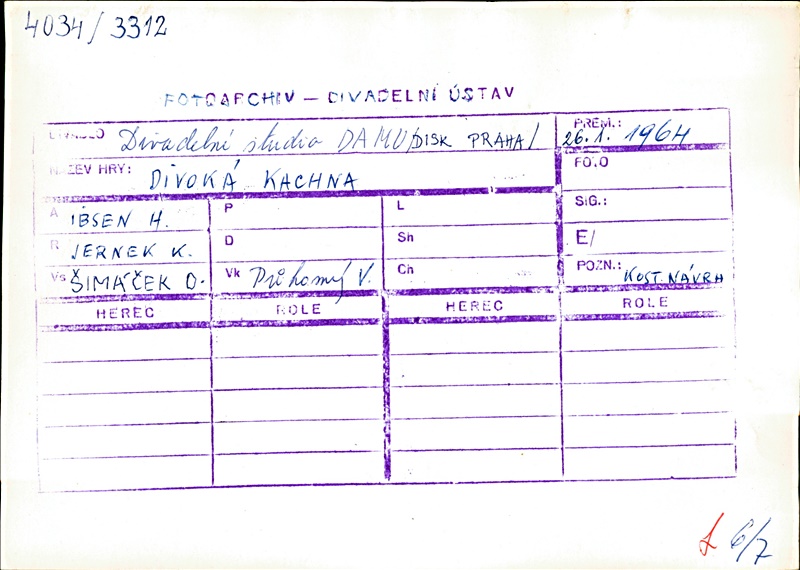 4034/3312
FOTOARCHIV — DIVADELNÍ ÚSTAV
DIVADLO Divadelní studio DAMU/DISK PRAHA/
PREM.: 26.1. 1964
NÁZEV HRY: DIVOKÁ KACHNA
FOTO
A IBSEN H. P L SIG.:
R JERNEK K. D Sh E/
Vs ŠIMÁČEK O. Vk V. Ch POZN.: KOST. NÁVRH
HEREC ROLE HEREC ROLE
6/7